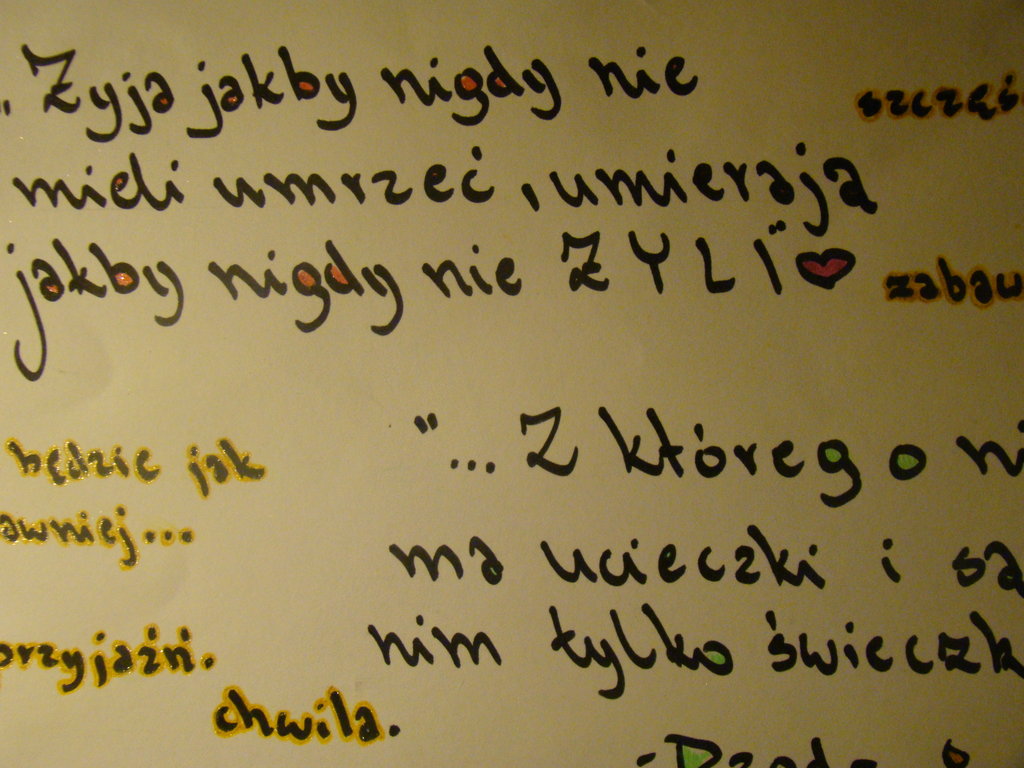 " Żyją jakby nigdy nie
mieli umrzeć, umierają
jakby nigdy nie ŻYLI"
szczęś
zabaw
będzie jak
awniej...
"... Z którego ni
ma ucieczki i są
nim tylko świeczk
przyjaźń.
chwila.